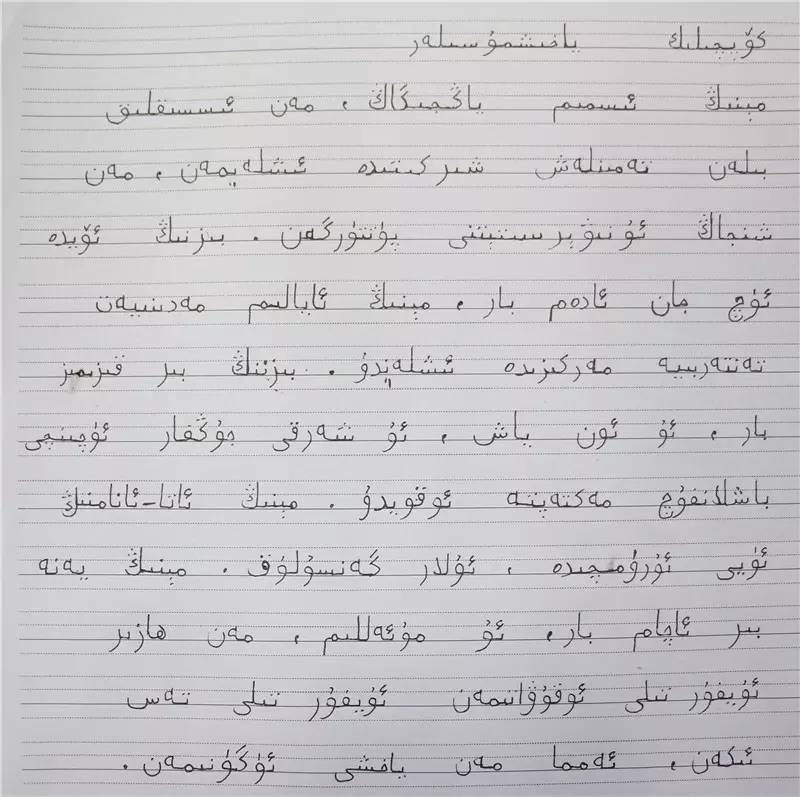 كۆپچىلىك ياخشىمۇسىلەر
مېنىڭ ئىسمىم ياڭجىڭاڭ، مەن ئىسسىقلىق
بىلەن تەمىنلەش شىركىتىدە ئىشلەيمەن، مەن
شىنجاڭ ئۇنىۋېرسىتېتنى پۈتتۈرگەن. بىزنىڭ ئۆيدە
ئۈچ جان ئادەم بار، مېنىڭ ئايالىم مەدىنىيەت
تەنتەربىيە مەركىزىدە ئىشلەيدۇ. بىزنىڭ بىر قىزىمىز
بار، ئۇ ئون ياش، ئۇ شەرقى جۇڭغار ئۈچىنچى
باشلانغۇچ مەكتەپتە ئوقويدۇ. مېنىڭ ئاتا-ئانامنىڭ
ئۆيى ئۈرۈمچىدە، ئۇلار گەنسۇلۇق. مېنىڭ يەنە
بىر ئاچام بار، ئۇ مۇئەللىم، مەن ھازىر
ئۇيغۇر تىلى ئوقۇۋاتىمەن ئۇيغۇر تىلى تەس
ئىكەن، ئەمما مەن ياخشى ئۈگۈنىمەن.